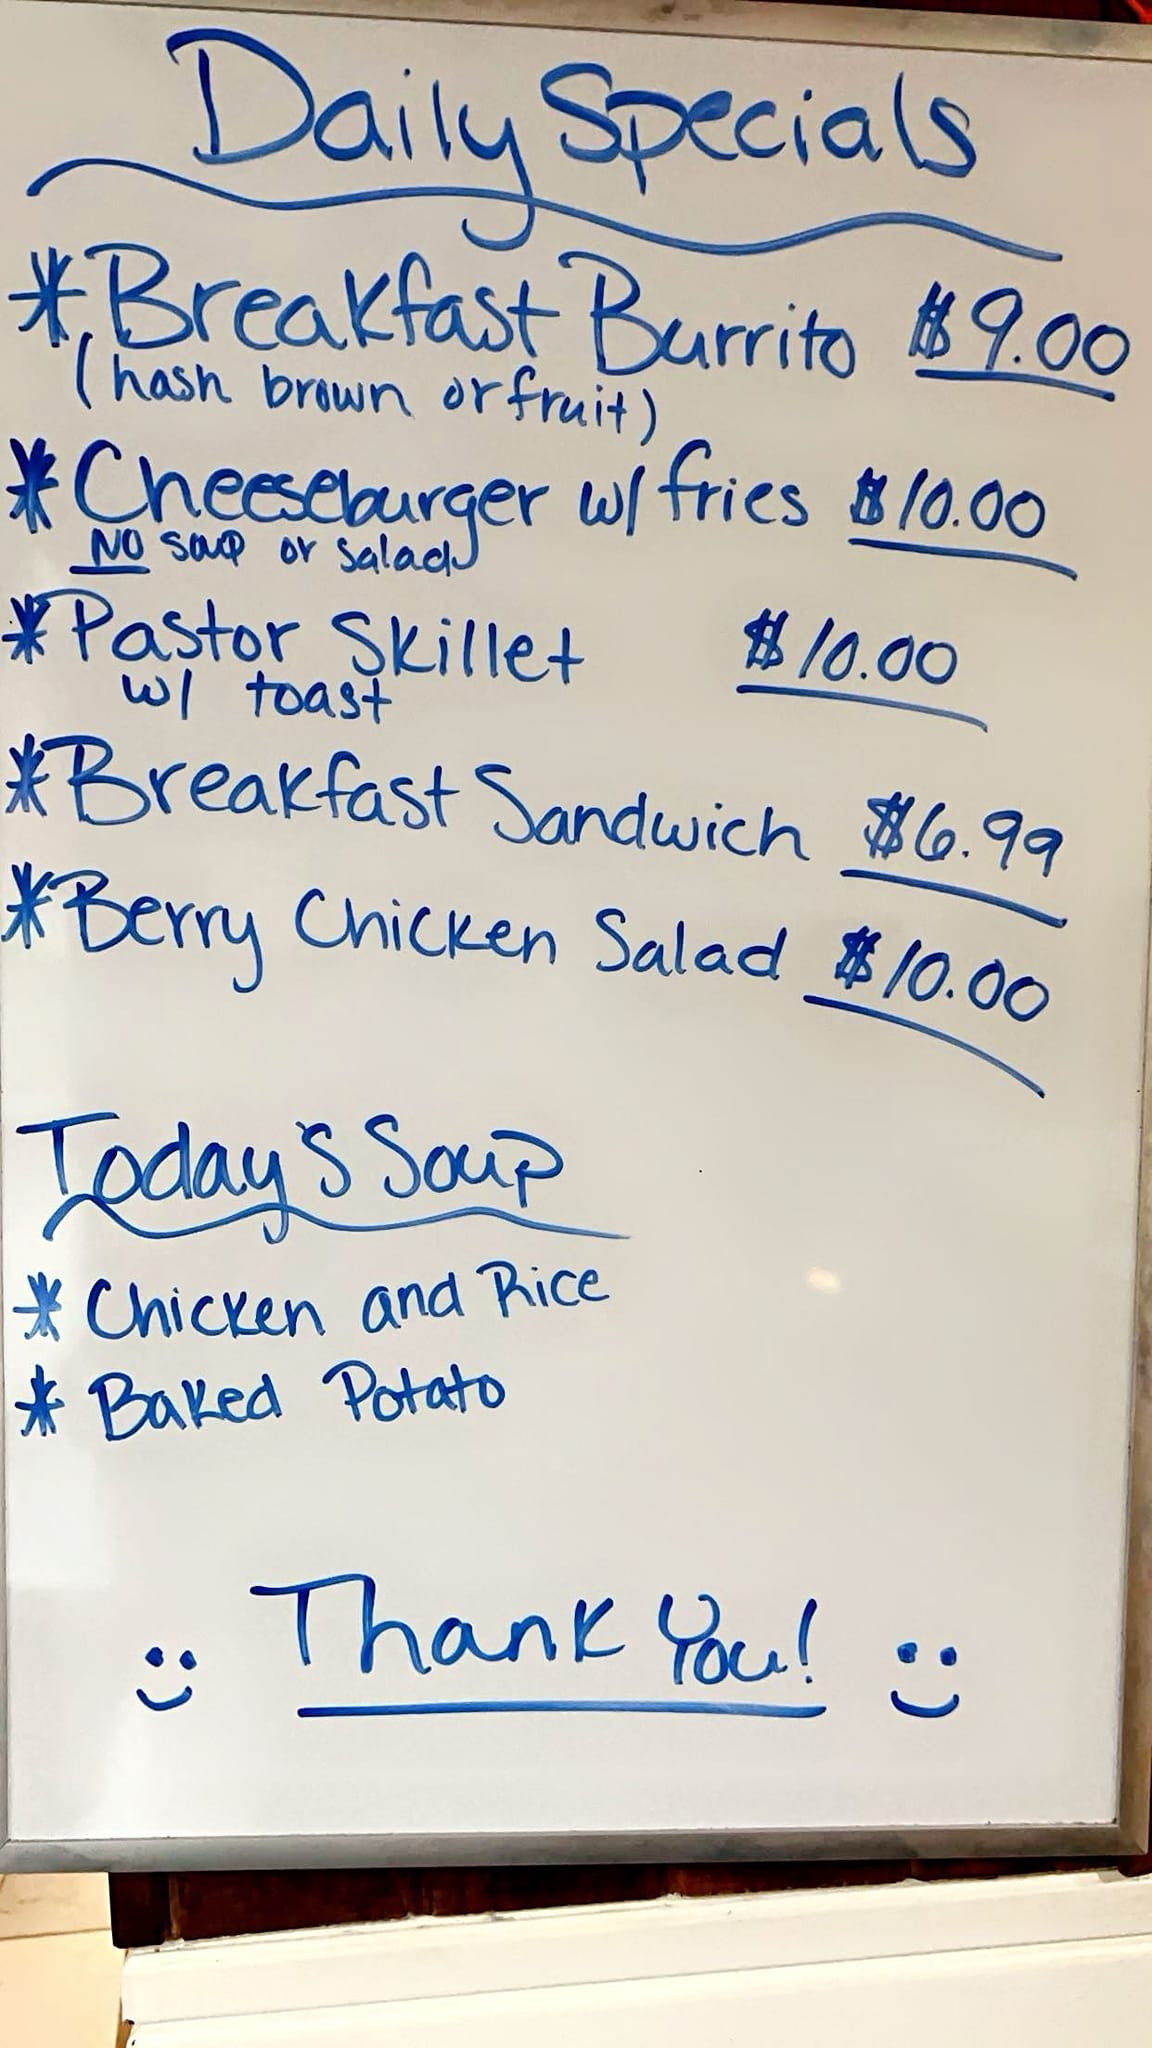 Daily Specials
* Breakfast Burrito $9.00
(hash brown or fruit)
* Cheeseburger w/ fries $10.00
NO soup or salad
* Pastor Skillet $10.00
w/ toast
* Breakfast Sandwich $6.99
* Berry Chicken Salad $10.00
Today's Soup
* Chicken and Rice
* Baked Potato
Thank You!